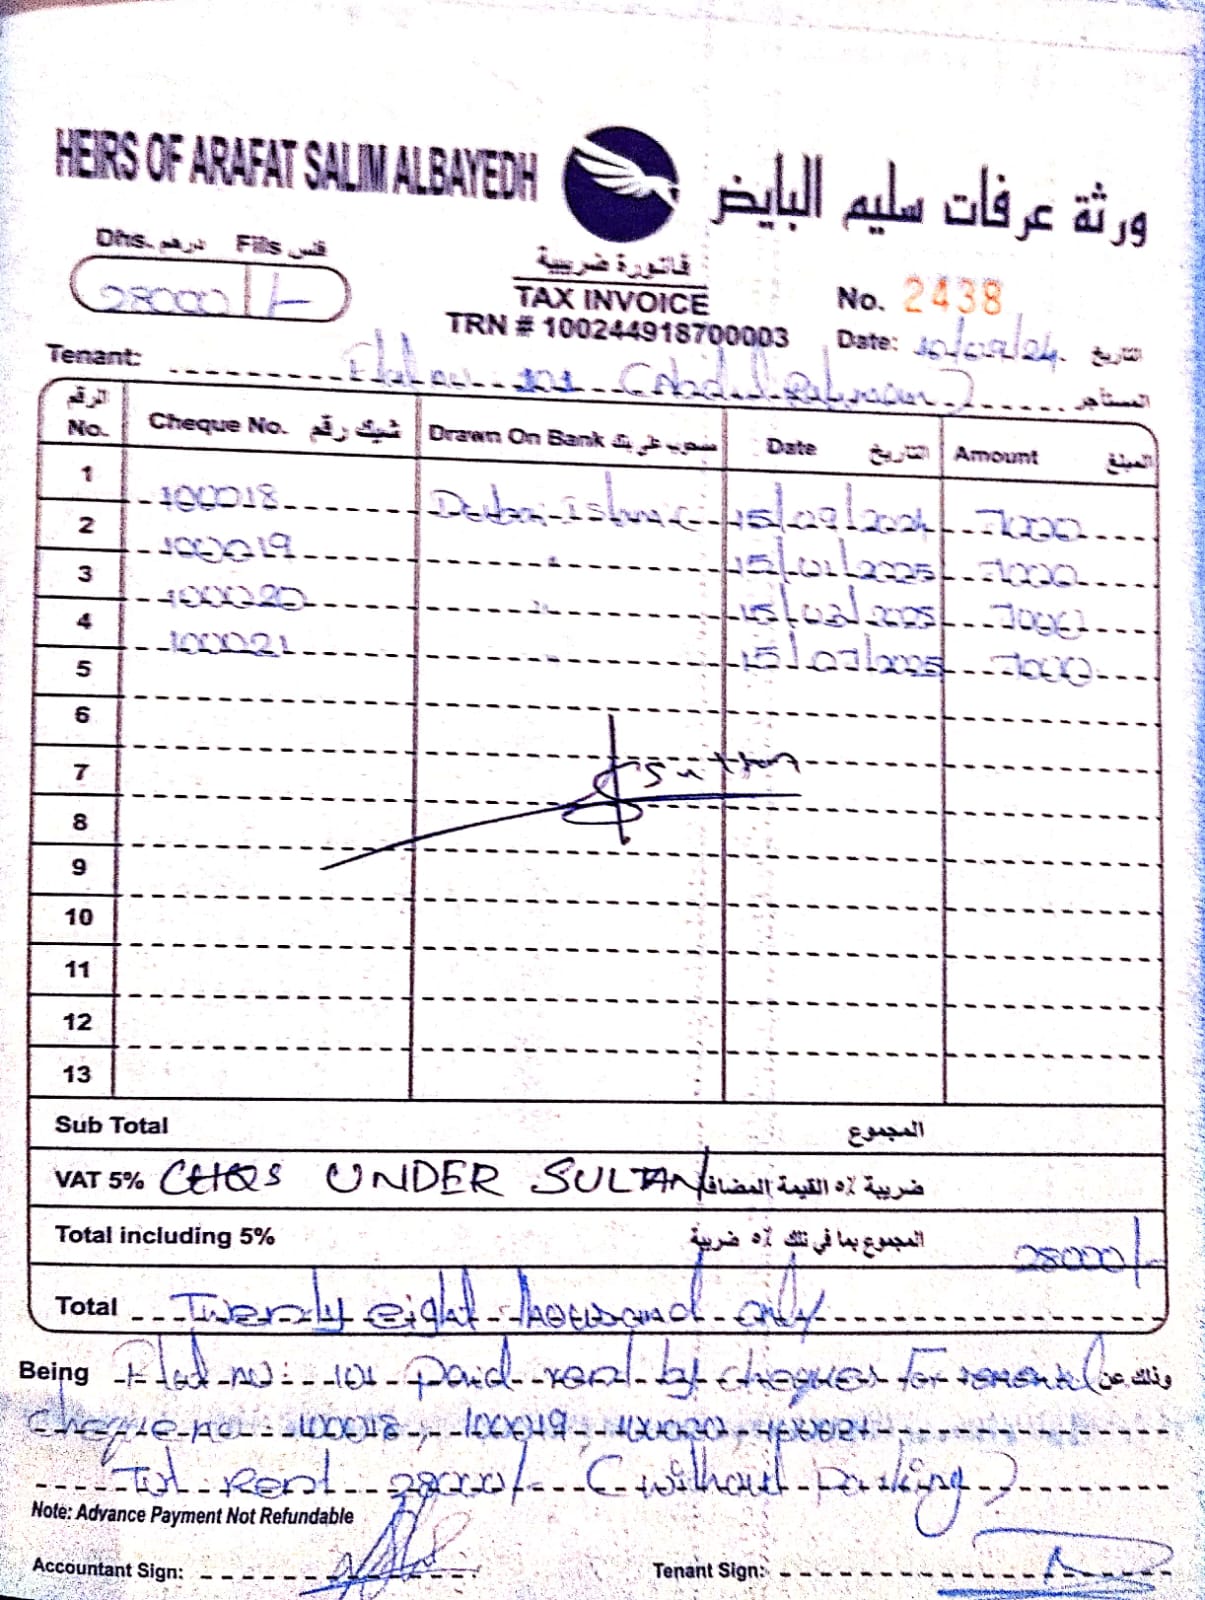 HEIRS OF ARAFAT SALIM ALBAYEDH
ورثة عرفات سليم البايض
Dhs. درهم Fils فلس
28000/-
فاتورة ضريبية
TAX INVOICE
TRN # 100244918700003
No. 2438
Date: 10/09/24. التاريخ
Tenant: Flat no 101 (Abdul Rahman) المستأجر
الرقم No. Cheque No. شيك رقم Drawn On Bank مسحوب على بنك Date التاريخ Amount المبلغ
1 100018 Dubai Islamic 15/09/2024 7000
2 100019 " 15/01/2025 7000
3 100020 " 15/03/2025 7000
4 100021 " 15/07/2025 7000
5
6
7
Sultan
8
9
10
11
12
13
Sub Total المجموع
VAT 5% CHQS UNDER SULTAN ضريبة ٥% القيمة المضافة
Total including 5% المجموع بما في ذلك ٥% ضريبة 28000/-
Total Twenty eight thousand only
Being Flat no: 101 paid rent by cheques for renewal وذلك عن
cheque no: 100018, 100019, 100020, 100021
Tot rent 28000/- (without parking)
Note: Advance Payment Not Refundable
Accountant Sign:
Tenant Sign: